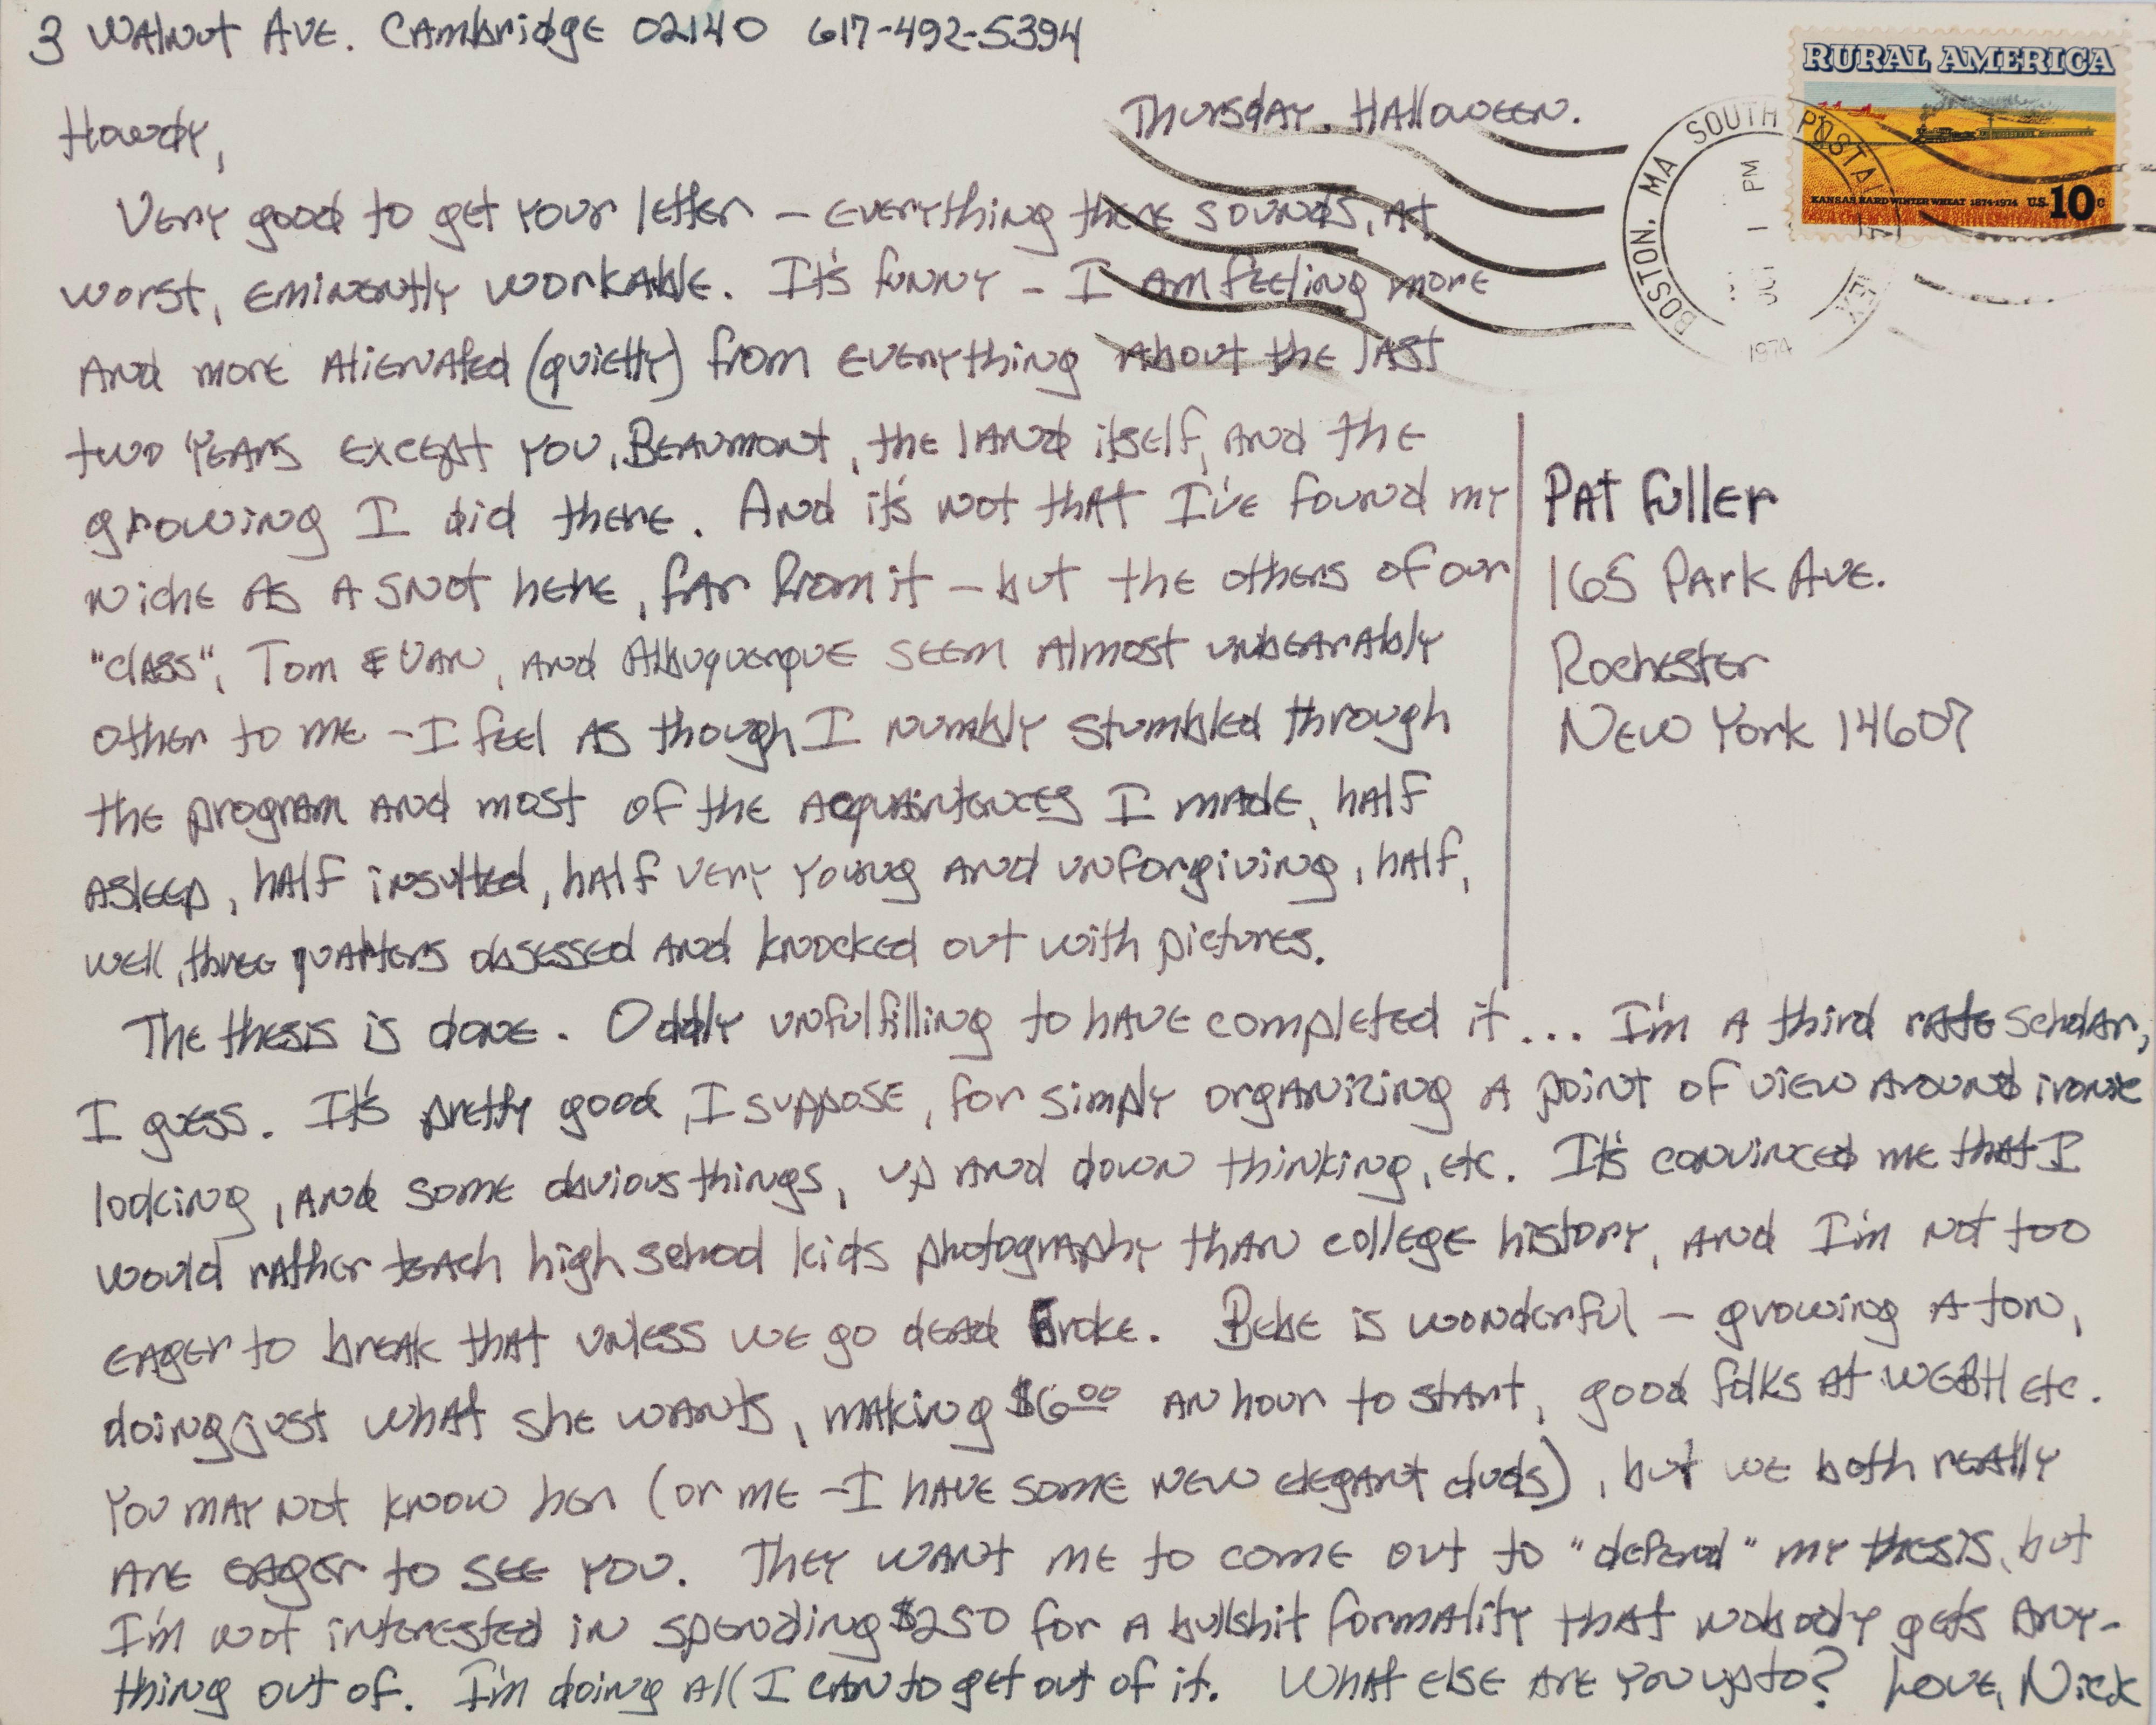 3 Walnut Ave. Cambridge 02140 617-492-5394
RURAL AMERICA
KANSAS HARD WINTER WHEAT 1874-1974 U.S. 10c
BOSTON, MA SOUTH POSTAL
PM
1
1974
Thursday. Halloween.
Howdy,
Very good to get your letter – everything there sounds, at
worst, eminently workable. It's funny – I am feeling more
and more alienated (quietly) from everything about the last
two years except you, Beaumont, the land itself, and the
growing I did there. And it's not that I've found my
niche as a snot here, far from it – but the others of our
"class", Tom & Van, and Albuquerque seem almost unbearably
other to me – I feel as though I numbly stumbled through
the program and most of the acquaintences I made, half
asleep, half insulted, half very young and unforgiving, half,
well, three quarters obsessed and knocked out with pictures.
Pat Fuller
165 Park Ave.
Rochester
New York 14607
The thesis is done. Oddly unfulfilling to have completed it... I'm a third rate scholar,
I guess. It's pretty good, I suppose, for simply organizing a point of view around ironic
looking, and some obvious things, up and down thinking, etc. It's convinced me that I
would rather teach high school kids photography than college history, and I'm not too
eager to break that unless we go dead broke. Bebe is wonderful – growing a ton,
doing just what she wants, making $6.00 an hour to start, good folks at WGBH etc.
You may not know her (or me – I have some new elegant duds), but we both really
are eager to see you. They want me to come out to "defend" my thesis, but
I'm not interested in spending $250 for a bullshit formality that nobody gets any-
thing out of. I'm doing all I can to get out of it. What else are you up to? Love, Nick